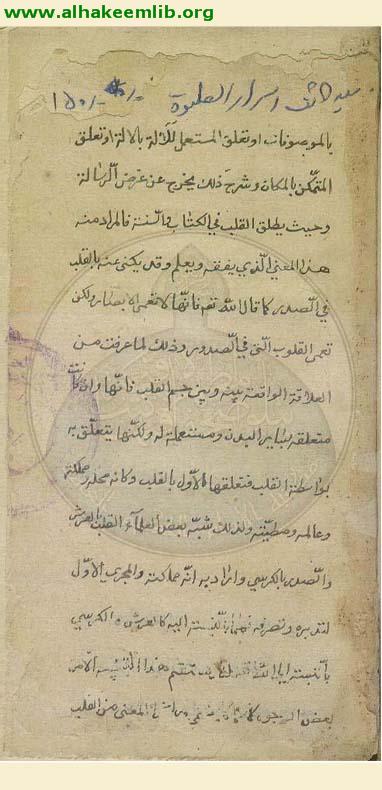 www.alhakeemlib.org
اسرار الصلوة
بالموصوفات او تعلق المستعمل للآلة بالالة او تعلق
المتمكّن بالمكان وشرح ذلك يخرج عن غرض الرسالة
وحيث يطلق القلب في الكتاب والسنة فالمراد منه
هذا المعنى الّذي يفقه ويعلم وقد يكنى عنه بالقلب
في الصدر كما قال الله تعه فانّها لا تعمى الابصار ولكن
تعمى القلوب الّتي في الصدور وذلك لما عرفت من
العلاقة الواقعة بينه وبين جسم القلب فانّها وان كانت
متعلقه بساير البدن ومستعملة له ولكنّها يتعلّق به
بواسطة القلب فتعلقها الاوّل بالقلب وكانه محله ومملكته
وعالمه ومطيّته ولذلك شبّه بعض العلمآء القلب بالعرش
والصدر بالكرسي واراد به انّه مملكته والمجرى الاوّل
لتدبيره وتصرفه فهما بالنّسبة اليه كالعرش والكرسي
بالنّسبة الى الله تعه ولا يستقيم هذا التشبيه الّا من
بعض الوجوه المعنى من القلب